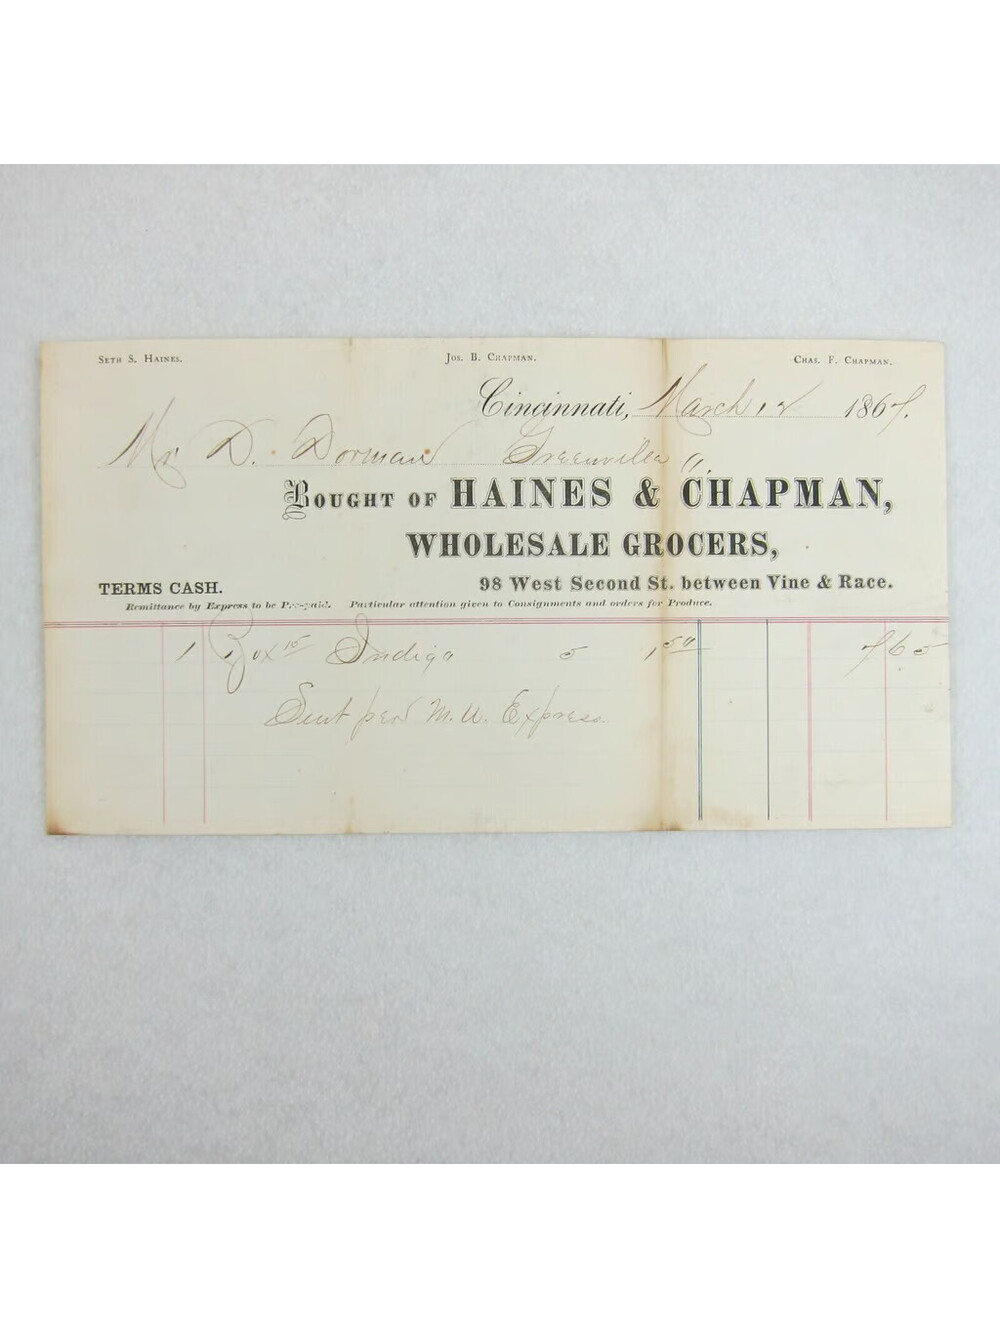 Seth S. Haines. Jos. B. Chapman. Chas. F. Chapman.
Cincinnati, March 12 1867.
Mr D. Dorman Greenville
Bought of HAINES & CHAPMAN,
WHOLESALE GROCERS,
TERMS CASH. 98 West Second St. between Vine & Race.
Remittance by Express to be Pre-paid. Particular attention given to Consignments and orders for Produce.
1 Box 15 Indigo 5 1 50 7 65
Sent per M. U. Express.